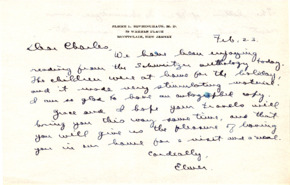 ELMER L. SEVRINGHAUS, M. D.
MONTCLAIR, NEW JERSEY
Feb. 22
Dear Charles,
We have been enjoying
reading from the Schweitzer anthology today.
The children were at home for the holiday,
and it made very stimulating material.
I am so glad to have an autographed copy.
Grace and I hope your travels will
bring you this way some time, and that
you will give us the pleasure of having
you in our home for a visit and a meal.
Cordially,
Elmer